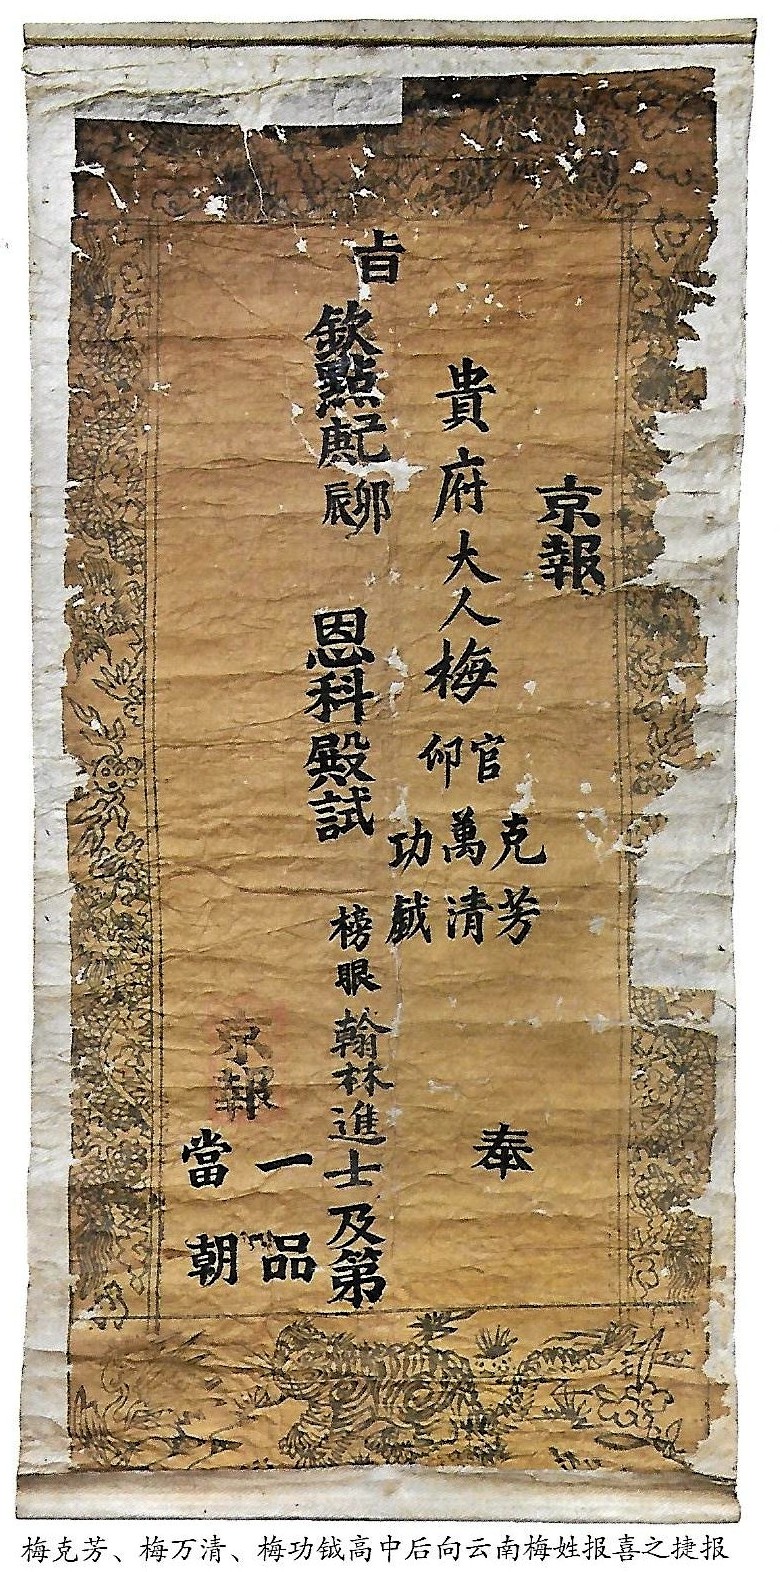 京報
貴府大人梅官仰克芳萬清功鉞奉
旨
欽點己卯庚辰恩科殿試榜眼翰林進士及第
一品
當朝
京報
梅克芳、梅万清、梅功钺高中后向云南梅姓报喜之捷报